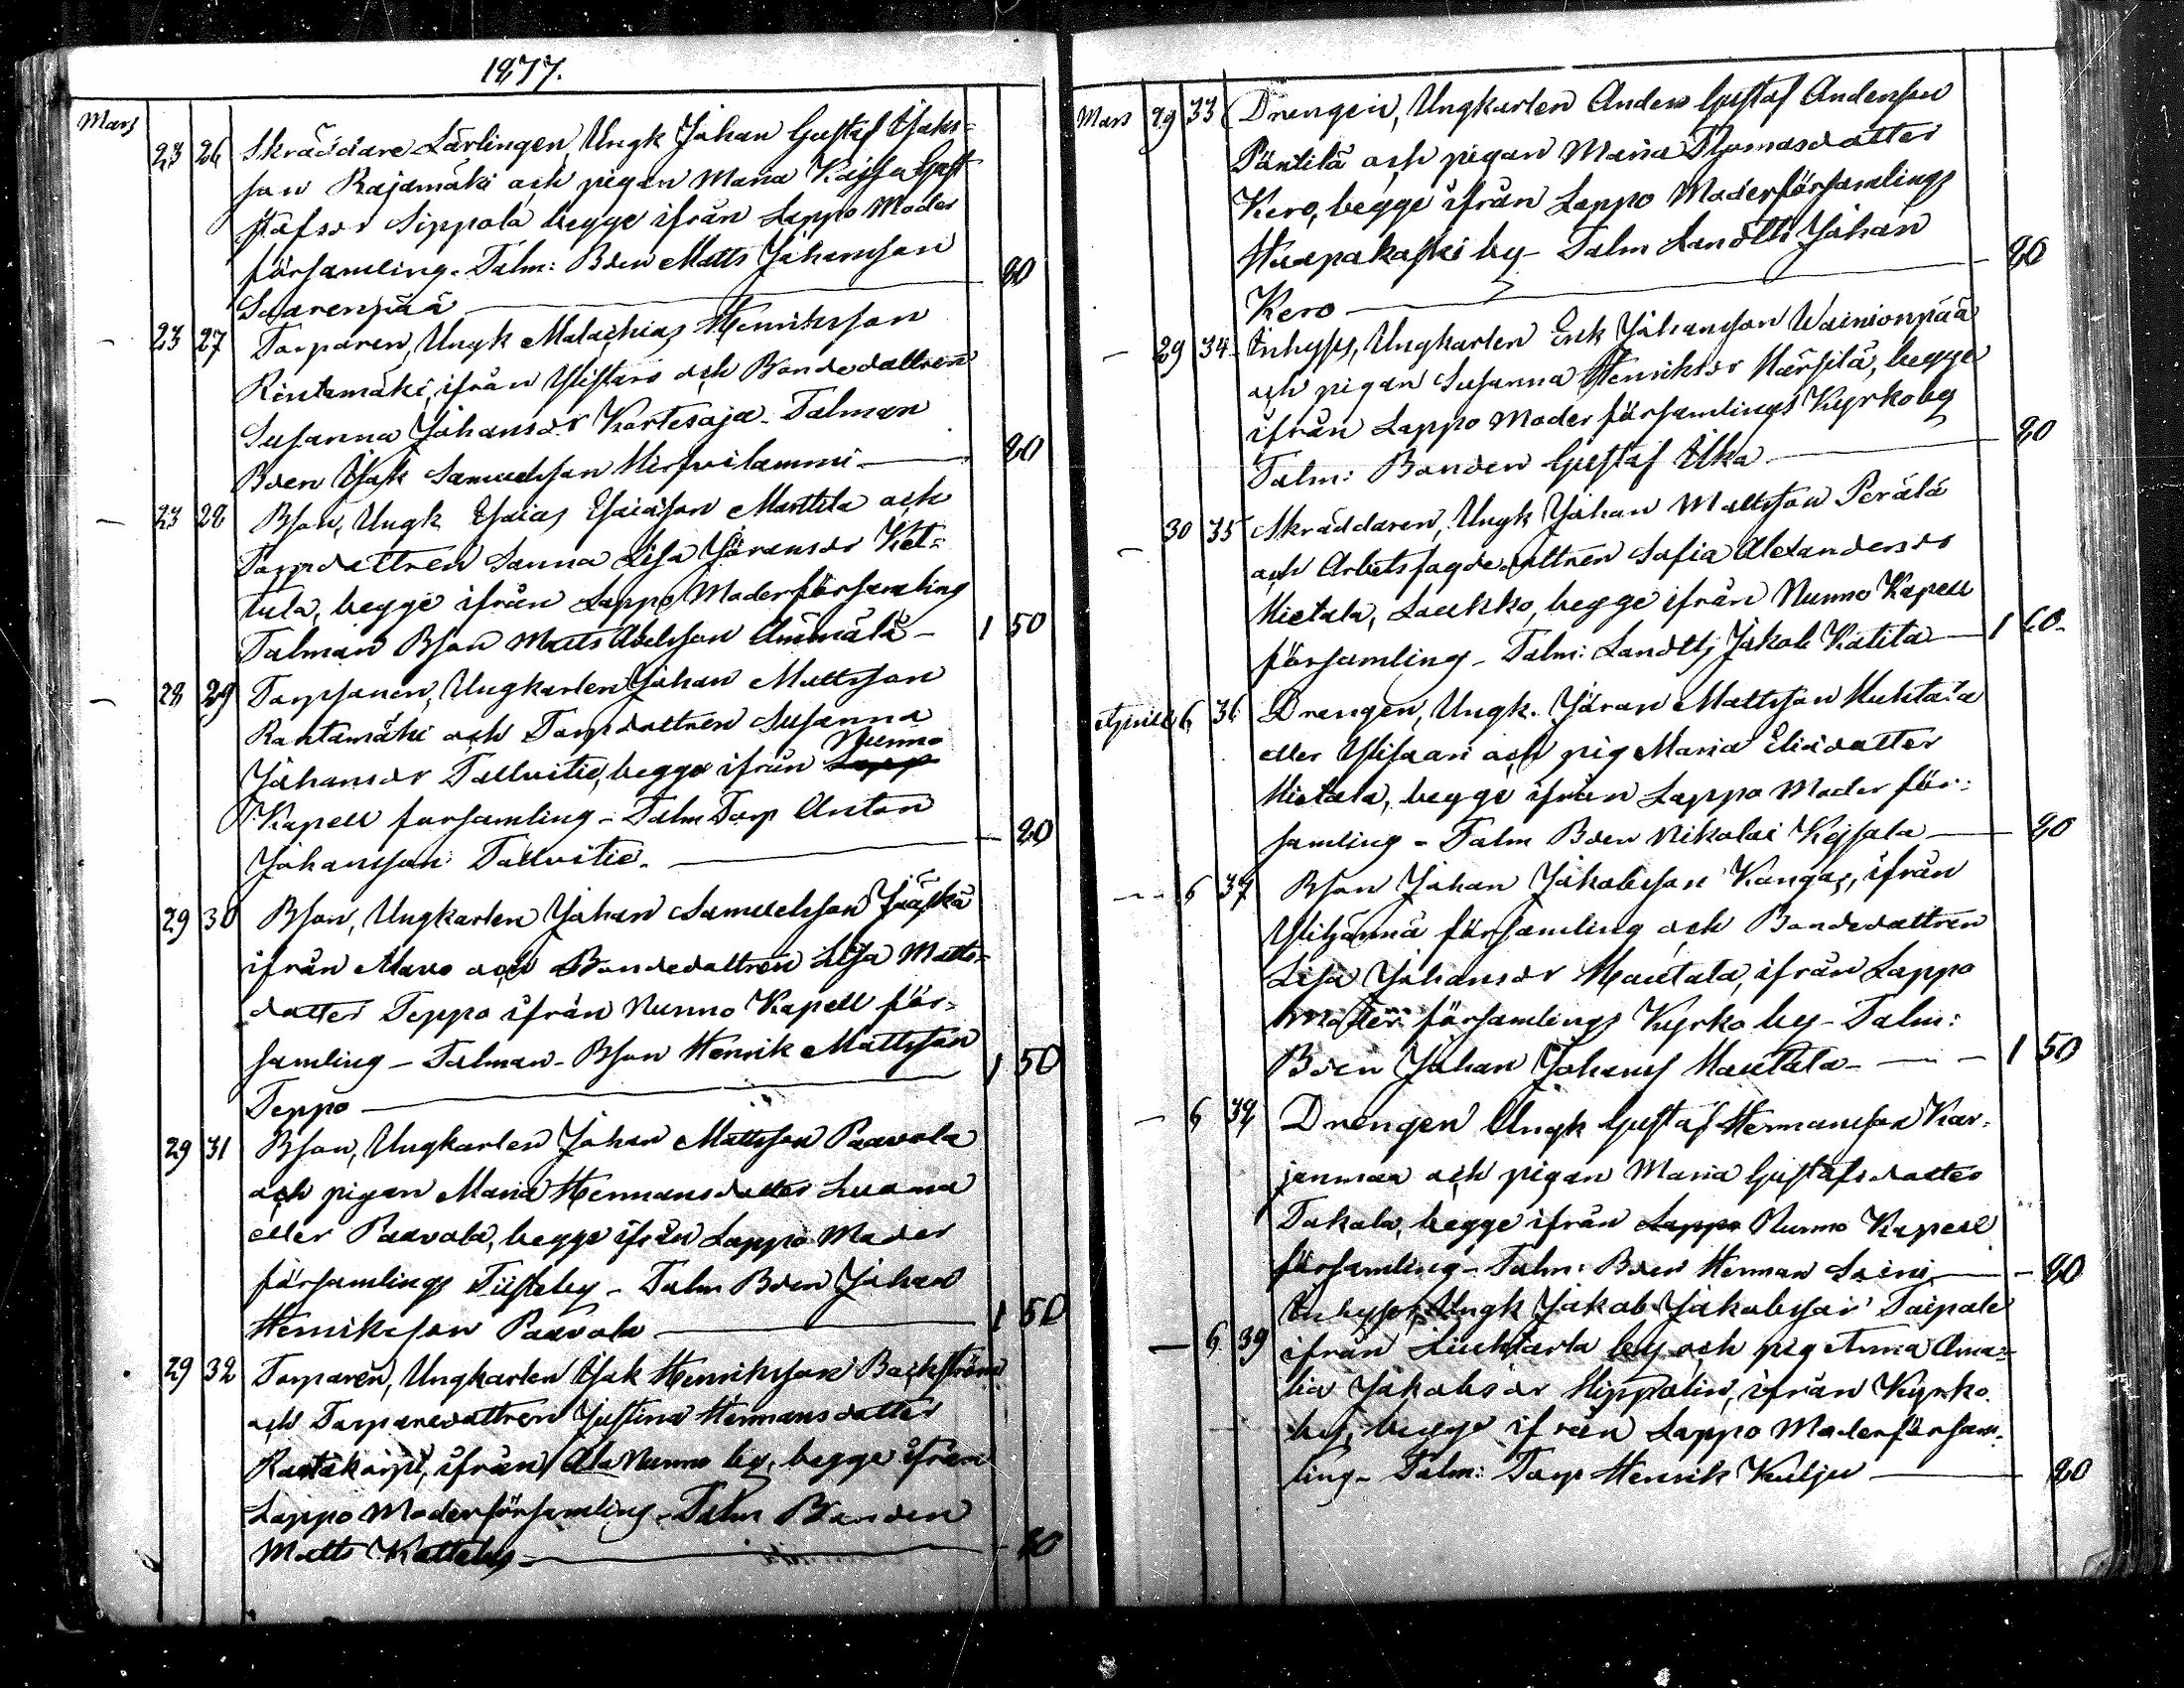 1877.
Mars
23 26 Skräddare Lärlingen, Ungk Johan Gustaf Isaks=
son Rajamäki och pigan Maria Kajsa Gust
stafsdr Sippola begge ifrån Lappo Moder
församling. Talm: Bden Matts Johansson
Saarenpää — 80
— 23 27 Torparen, Ungk Malachias Henriksson
Rintamäki, ifrån Ylistaro och Bondedottren
Susanna Johansdr Kortesoja. Talman
Bden Isak Samuelsson Hirfvilammi — 80
— 23 28 Bson, Ungk Esaias Esaiasson Marttila och
Torpdottren Sanna Lisa Göransdr Ket=
tula, begge ifrån Lappo Moderförsamling
Talman Bson Matts Abelsson Ämmälä — 1 50
— 28 29 Torpsonen, Ungkarlen Johan Mattsson
Rantamäki och Torpdottren Susanna
Nurmo
Johansdr Tallvitie, begge ifrån Lappo
Kapell forsamling - Talm Torp Anton
Johansson Tallvitie. — 80
29 30 Bson, Ungkarlen Johan Samuelsson Jääskä
ifrån Alavo och Bondedottren Lisa Matts=
dotter Teppo ifrån Nurmo Kapell för=
samling - Talman - Bson Henrik Mattsson
Teppo — 1 50
29 31 Bson, Ungkarlen Johan Mattsson Paavola
och pigan Maria Hermansdotter Luoma
eller Paavola, begge ifrån Lappo Moder
församlings Tiisteby - Talm Bden Johan
Henriksson Paavola — 1 50
29 32 Torparen, Ungkarlen Isak Henriksson Backström
och Torparedottren Justina Hermansdotter
Rantakorpi, ifrån Ala Nurmo by, begge ifrån
Lappo Moderförsamling - Talm Bonden
Matts Kattelus — 80
Mars 29 33 Drengen, Ungkarlen Anders Gustaf Andersson
Päntilä och pigan Maria Thomasdotter
Kero, begge ifrån Lappo Moderförsamlings
Haapakoski by - Talm Landtb Johan
Kero — 80
— 29 34 Inhyss, Ungkarlen Erik Johansson Wainionpää
och pigan Susanna Henriksdr Härsilä, begge
ifrån Lappo Moderförsamlings Kyrkoby
Talm: Bonden Gustaf Ilka — 80
— 30 35 Skräddaren, Ungk Johan Mattsson Perälä
och Arbetsfogdedottren Sofia Alexandersdr
Hietala, Laukko, begge ifrån Nurmo Kapell
församling - Talm: Landtb Jakob Katila — 1 60.
April 6 36 Drengen, Ungk. Göran Mattsson Huhtala
eller Ylisaari och pig Maria Eliædotter
Hietala, begge ifrån Lappo Moder för=
samling - Talm Bden Nikolai Kejsala — 80
— 6 37 Bson Johan Jakobsson Kangas, ifrån
Ylihärmä församling och Bondedottren
Lisa Johansdr Hautala, ifrån Lappo
Moder församlings Kyrko by - Talm:
Bden Johan Johans Hautala — 1 50
— 6 38 Drengen Ungk Gustaf Hermansson Kar=
janmaa och pigan Maria Gustafsdotter
Takala, begge ifrån Lappo Nurmo Kapell
församling - Talm: Bden Herman Leini — 80
Inhyses, Ungk Jakob Jakobsson Taipale
— 6 39 ifrån Liuhtarla by och pig Anna Ama=
lia Jakobsdr Hippolin, ifrån Kyrko
by, begge ifrån Lappo Moderförsam=
ling - Talm: Torp Henrik Kulju — 80